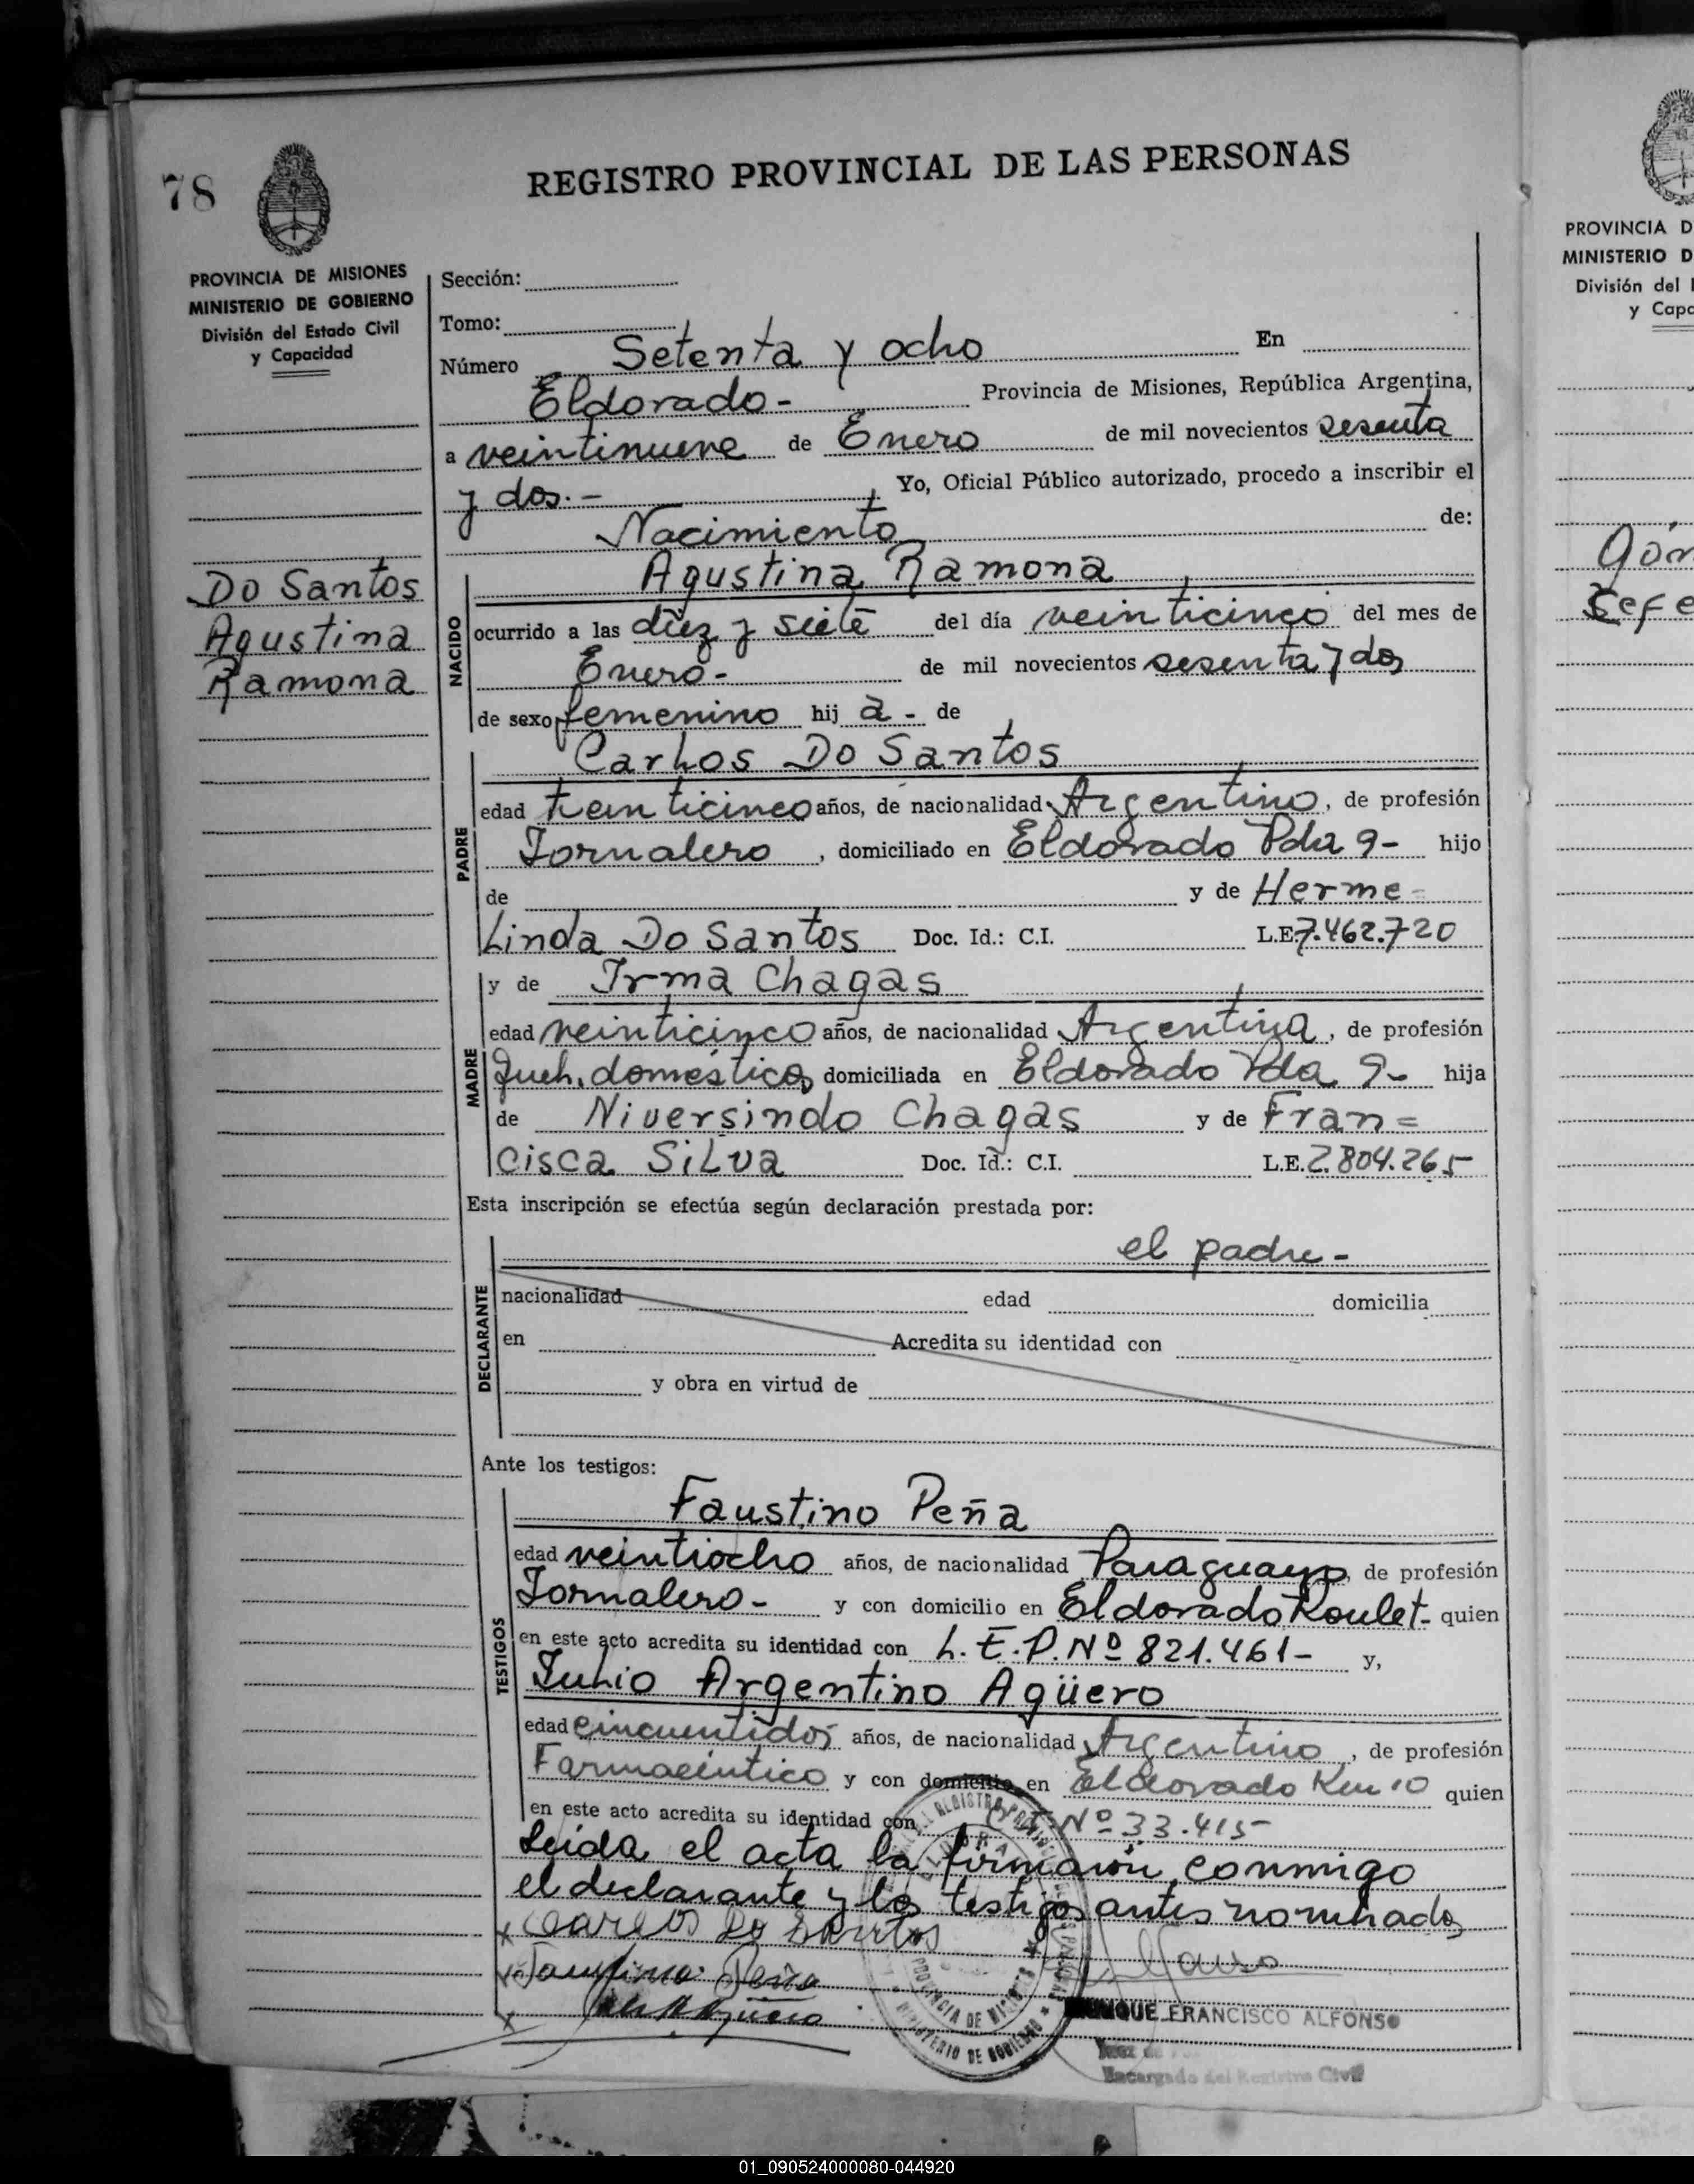 78
REGISTRO PROVINCIAL DE LAS PERSONAS
PROVINCIA DE MISIONES
MINISTERIO DE GOBIERNO
División del Estado Civil
y Capacidad
Do Santos
Agustina
Ramona
Sección:
Tomo:
Número Setenta y ocho En
Eldorado - Provincia de Misiones, República Argentina,
a veintinueve de Enero de mil novecientos sesenta
y dos.- Yo, Oficial Público autorizado, procedo a inscribir el
Nacimiento de:
NACIDO
Agustina Ramona
ocurrido a las diez y siete del día veinticinco del mes de
Enero - de mil novecientos sesenta y dos
de sexo femenino hij a - de
PADRE
Carlos Do Santos
edad treinticinco años, de nacionalidad Argentino, de profesión
Jornalero, domiciliado en Eldorado Pda 9- hijo
de y de Herme-
Linda Do Santos Doc. Id.: C.I. L.E. 7.462.720
MADRE
y de Irma Chagas
edad veinticinco años, de nacionalidad Argentina, de profesión
Queh. domésticos, domiciliada en Eldorado Pda 9- hija
de Niversindo Chagas y de Fran=
cisca Silva Doc. Id.: C.I. L.E. 2.804.265
Esta inscripción se efectúa según declaración prestada por:
DECLARANTE
el padre -
nacionalidad edad domicilia
en Acredita su identidad con
y obra en virtud de
Ante los testigos:
TESTIGOS
Faustino Peña
edad veintiocho años, de nacionalidad Paraguayo, de profesión
Jornalero - y con domicilio en Eldorado Koulet - quien
en este acto acredita su identidad con L.E.P. Nº 821.461- y,
Julio Argentino Agüero
edad cincuentidós años, de nacionalidad Argentino, de profesión
Farmacéutico y con domicilio en Eldorado Km 10 quien
en este acto acredita su identidad con Nº 33.415
Leída el acta la firmaron conmigo
el declarante y los testigos antes nombrados
x Carlos Do Santos
x Faustino Peña
x Agüero
PROVINCIA DE MISIONES
MINISTERIO DE GOBIERNO
FRANCISCO ALFONSO
Encargado del Registro Civil
PROVINCIA D
MINISTERIO D
División del
y Capa
Góm
Cefe
01_090524000080-044920